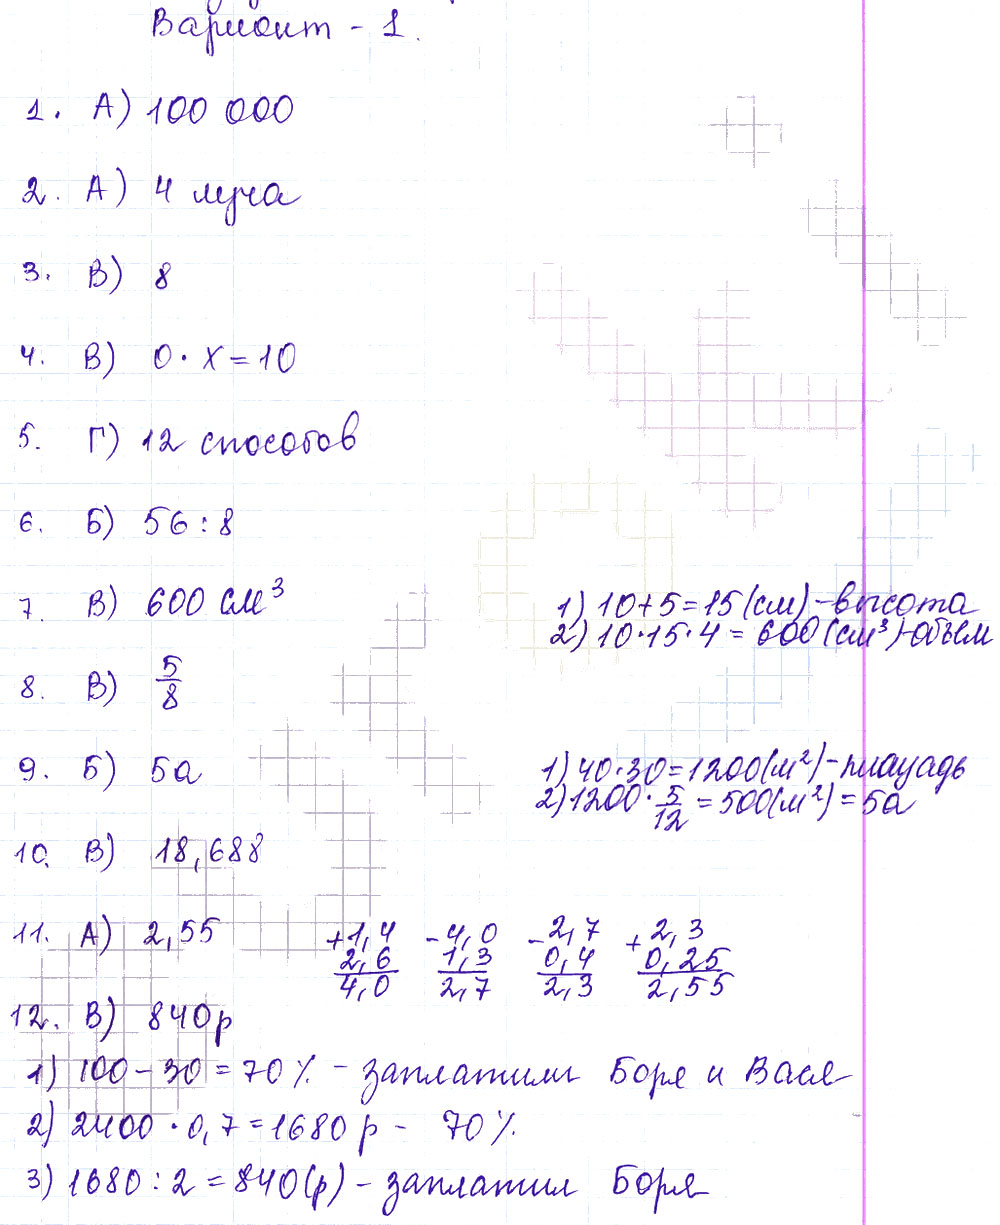 Вариант - 1.
1. А) 100 000
2. А) 4 луча
3. В) 8
4. В) 0 · х = 10
5. Г) 12 способов
6. Б) 56 : 8
7. В) 600 см³
1) 10+5=15 (см) - высота
2) 10·15·4 = 600 (см³) - объём
8. В) 5/8
9. Б) 5а
1) 40·30=1200(м²) - площадь
2) 1200 · 5/12 = 500(м²) = 5а
10. В) 18,688
11. А) 2,55
+1,4 -4,0 -2,7 +2,3
2,6 1,3 0,4 0,25
4,0 2,7 2,3 2,55
12. В) 840р
1) 100 - 30 = 70 % - заплатили Боря и Вася
2) 2400 · 0,7 = 1680 р - 70 %.
3) 1680 : 2 = 840(р) - заплатил Боря